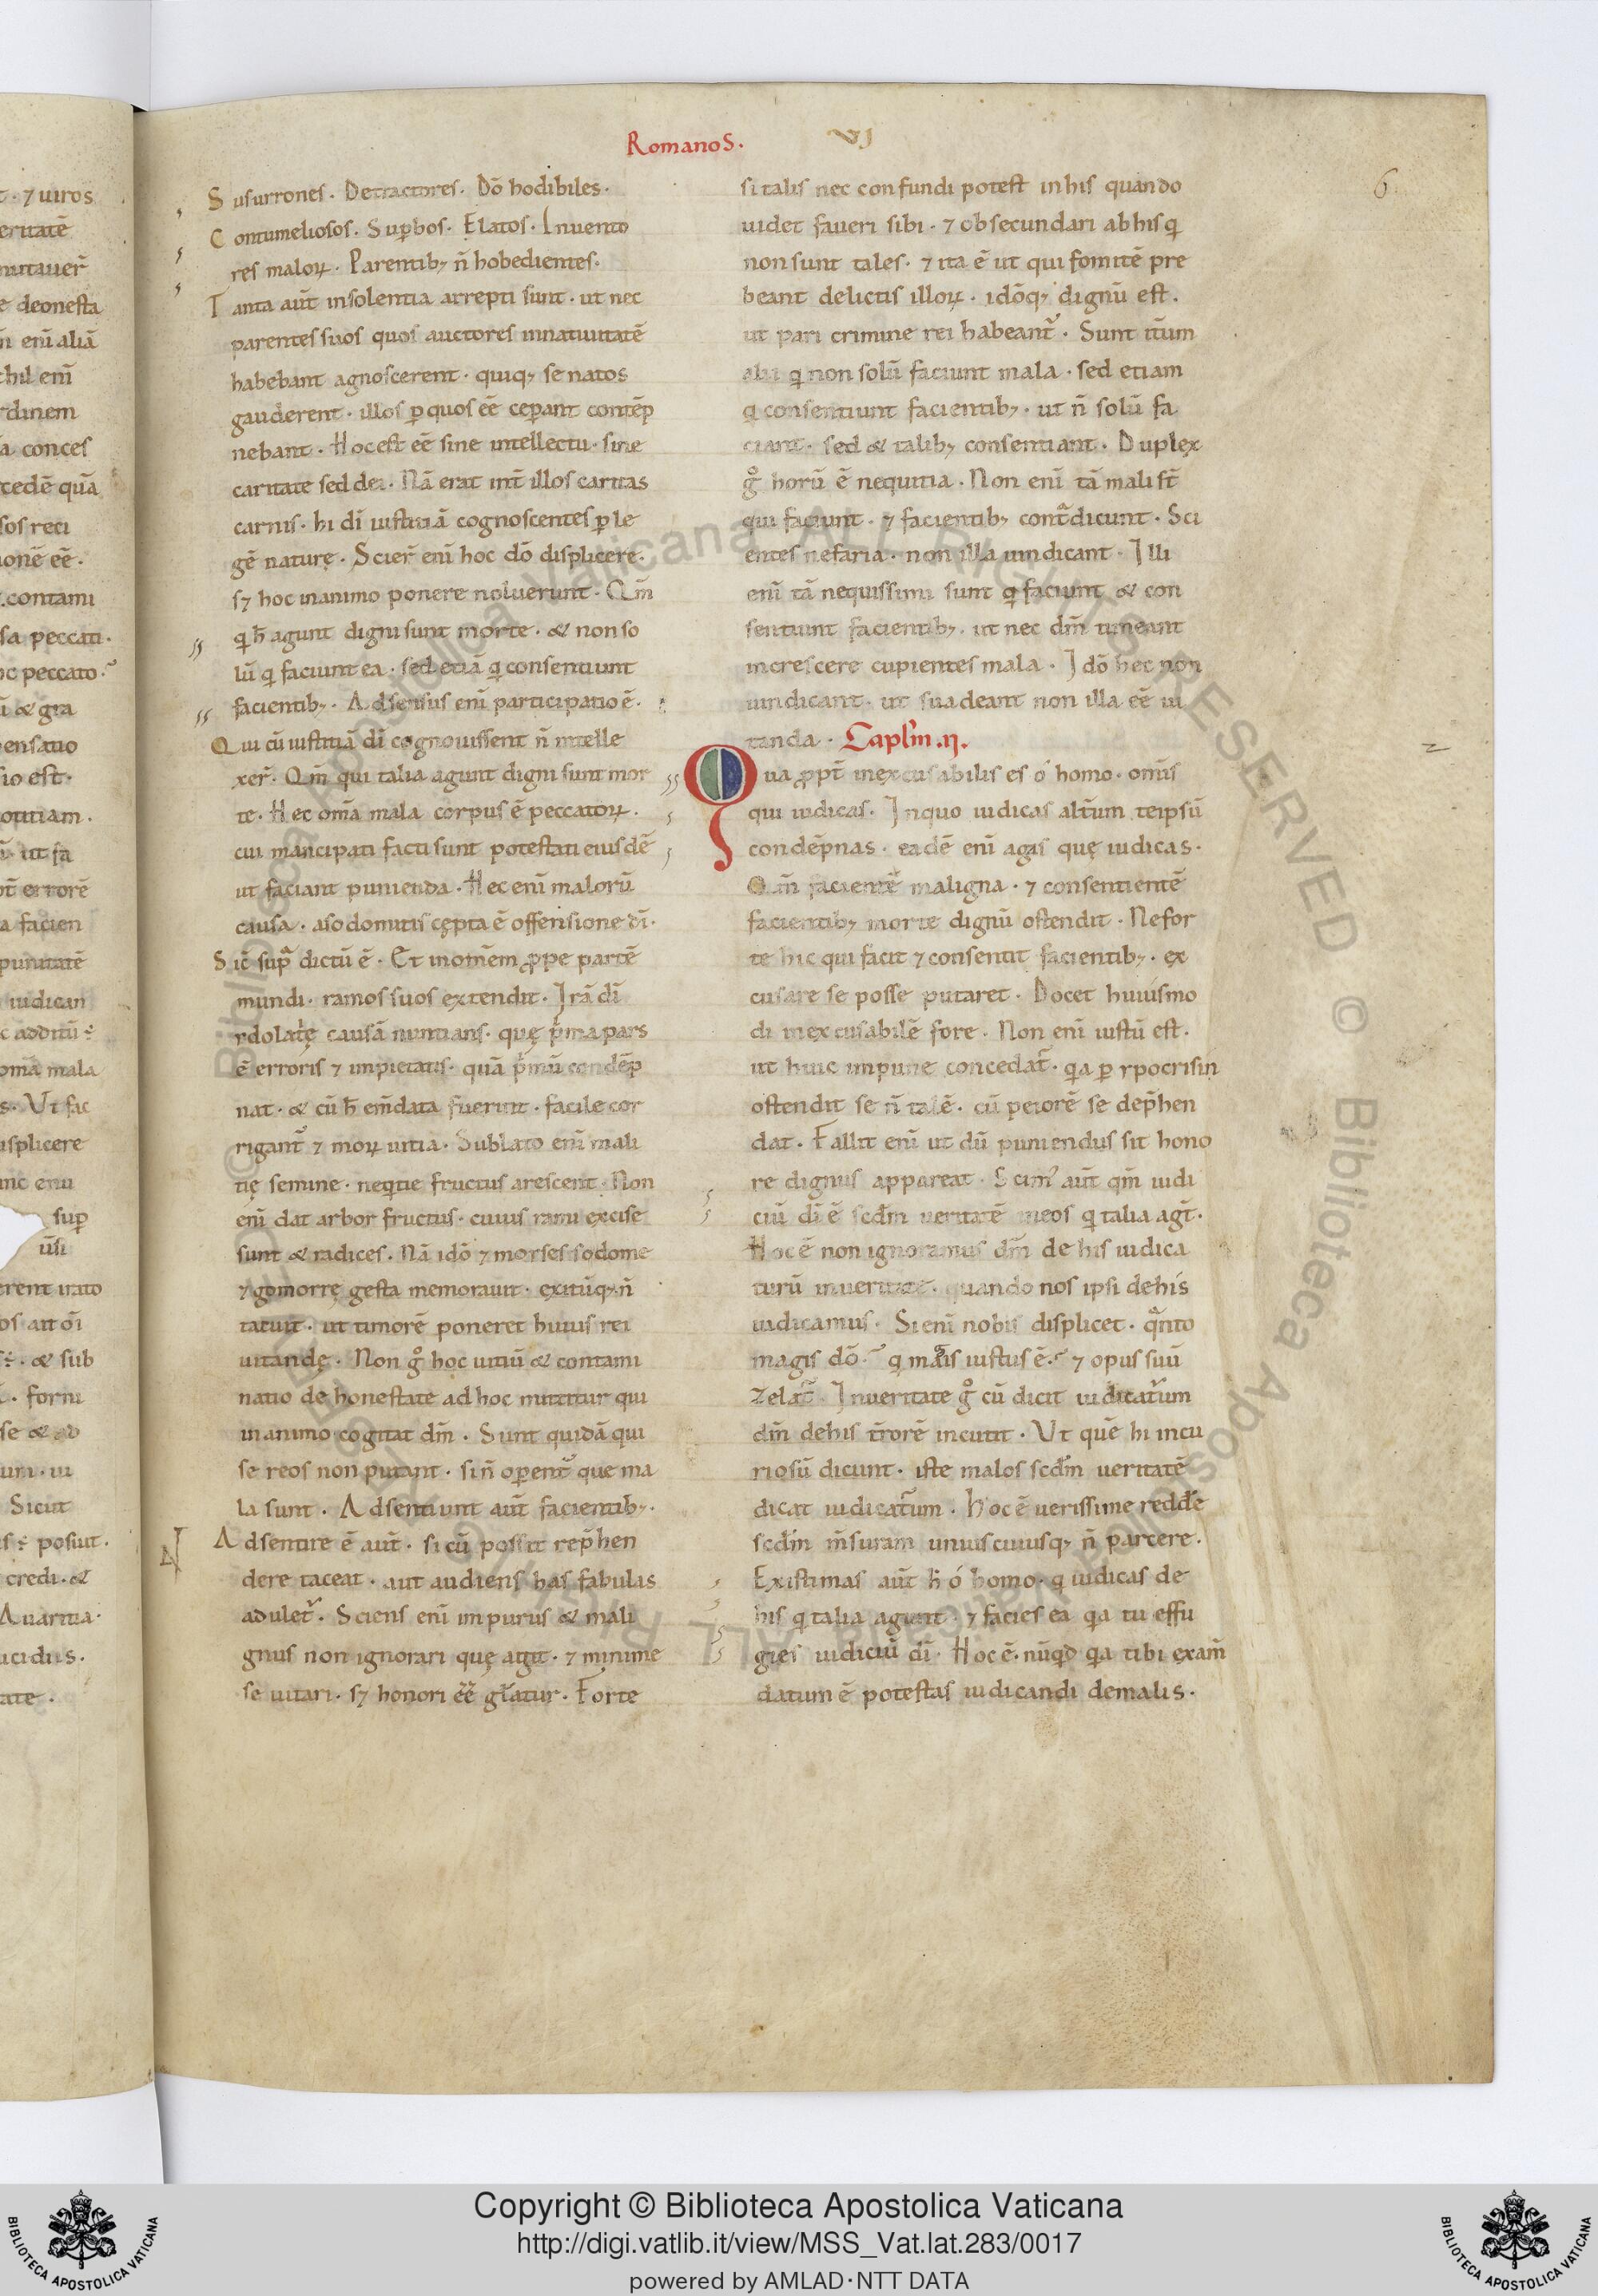 Romanos.
VI
6
Susurrones. Detractores. Dō hodibiles.
Contumeliosos. Suꝑbos. Elatos. Inuento
res maloꝝ. Parentibꝫ n̄ hobedientes.
Tanta aūt insolentia arrepti sunt. ut nec
parentes suos quos auctores innatiuitatē
habebant agnoscerent. quiqꝫ se natos
gauderent. illos ꝑ quos eē ceꝑant contēp
nebant. Hoc est eē sine intellectu. sine
caritate sed dei. Nā erat int̄ illos caritas
carnis. hi dī iusticiā cognoscentes ꝑ le
gē naturę. Scier̄ enī hoc dō displicere.
sꝫ hoc inanimo ponere noluerunt. Qm̄
q̄ h̄ agunt digni sunt morte. & non so
lū q̄ faciunt ea. sed etiā q̄ consentiunt
facientibꝫ. Adsensus enī participatio ē.
Qui cū iustitiā dī cognouissent n̄ intelle
xer̄. Qm̄ qui talia agunt digni sunt mor
te. Hec om̄a mala corpus ē peccatoꝝ.
cui mancipati facti sunt potestati eiusdē
ut faciant punienda. Hec enī malorū
causa. asodomitis cępta ē offensione dī.
Sic̄ supᵃ dictū ē. Et inom̄em ꝓpe partē
mundi. ramos suos extendit. Irā dī
ydolatᵉ̨ causā nuntians. quę pⁱma pars
ē erroris ⁊ impietatis. quā pⁱmū condēp
nat. & cū h̄ em̄data fuerint. facile cor
rigant᷑ ⁊ moꝝ uitia. Sublato enī mali
tię semine. neqⁱtie fructus arescent. Non
enī dat arbor fructus. cuius rami excise
sunt & radices. Nā idō ⁊ morses sodome
⁊ gomorrę gesta memorauit. exitūqꝫ n̄
tacuit. ut timorē poneret huius rei
uitandę. Non gͦ hoc uitiū & contami
natio de honestate ad hoc mittitur qui
inanimo cogitat dm̄. Sunt quidā qui
se reos non putant. si n̄ oꝑent᷑ que ma
la sunt. Adsentiunt aūt facientibꝫ.
Adsentire ē aūt. si cū possit rep̄hen
dere taceat. aut audiens has fabulas
adulet᷑. Sciens enī impurus & mali
gnus non ignorari quę agit. ⁊ minime
se uitari. sꝫ honori eē gᷓlatur. Forte
si talis nec confundi potest inhis quando
uidet faueri sibi. ⁊ obsecundari abhis q̄
non sunt tales. ⁊ ita ē ut qui fomitē pre
beant delictis illoꝝ. idōqꝫ dignū est.
ut pari crimine rei habeant᷑. Sunt it̄um
alii q̄ non solū faciunt mala. sed etiam
q̄ consentiunt facientibꝫ. ut n̄ solū fa
ciant. sed & talibꝫ consentiant. Duplex
gͦ horū ē nequitia. Non enī tā mali st̄
qui faciunt. ⁊ facientibꝫ contᵃdicunt. Sci
entes nefaria. non illa uindicant. Illi
enī tā nequissimi sunt q̄ faciunt & con
sentiunt facientibꝫ. ut nec dm̄ timeant
increscere cupientes mala. Idō hec non
uindicant. ut suadeant non illa eē ui
tanda. Capl̄m .II.
Qua ꝓpt̄ inexcusabilis es ó homo. om̄is
qui iudicas. Inquo iudicas alt̄um teipsū
condēpnas. eadē enī agis quę iudicas.
Qm̄ facientē maligna. ⁊ consentientē
facientibꝫ morte dignū ostendit. Nefor
te hic qui facit ⁊ consentit facientibꝫ. ex
cusare se posse putaret. Docet huiusmo
di inexcusabilē fore. Non enī iustū est.
ut huic impune concedat᷑. qᵃ ꝑ ypocrisin
ostendit se n̄ talē. cū peiorē se dep̄hen
dat. Fallit enī ut dū puniendus sit hono
re dignus appareat. Scimꝰ aūt qm̄ iudi
ciū dī ē scdm̄ ueritatē ineos q̄ talia agt̄.
Hoc ē non ignoramus dm̄ de his iudica
turū inueritate. quando nos ipsi dehis
iudicamus. Si enī nobis displicet. qᵃnto
magis dō. q̄ maᵍis iustus ē. ⁊ opus suū
zelat᷑. Inueritate gͦ cū dicit iudicat᷑um
dm̄ dehis t̄rorē incutit. Ut quē hi incu
riosū dicunt. iste malos scdm̄ ueritatē
dicat iudicat᷑um. Hoc ē uerissime redde᷑
scdm̄ m̄suram unuscuiusqꝫ n̄ parcere.
Existimas aūt h̄ ó homo. q̄ iudicas de
his q̄ talia agunt. ⁊ facies ea qᵃ tu effu
gies iudiciū dī. Hoc ē. nūqd̄ qᵃ tibi exam̄
datum ē potestas iudicandi demalis.
Copyright © Biblioteca Apostolica Vaticana
http://digi.vatlib.it/view/MSS_Vat.lat.283/0017
powered by AMLAD·NTT DATA
BIBLIOTECA APOSTOLICA VATICANA
BIBLIOTECA APOSTOLICA VATICANA